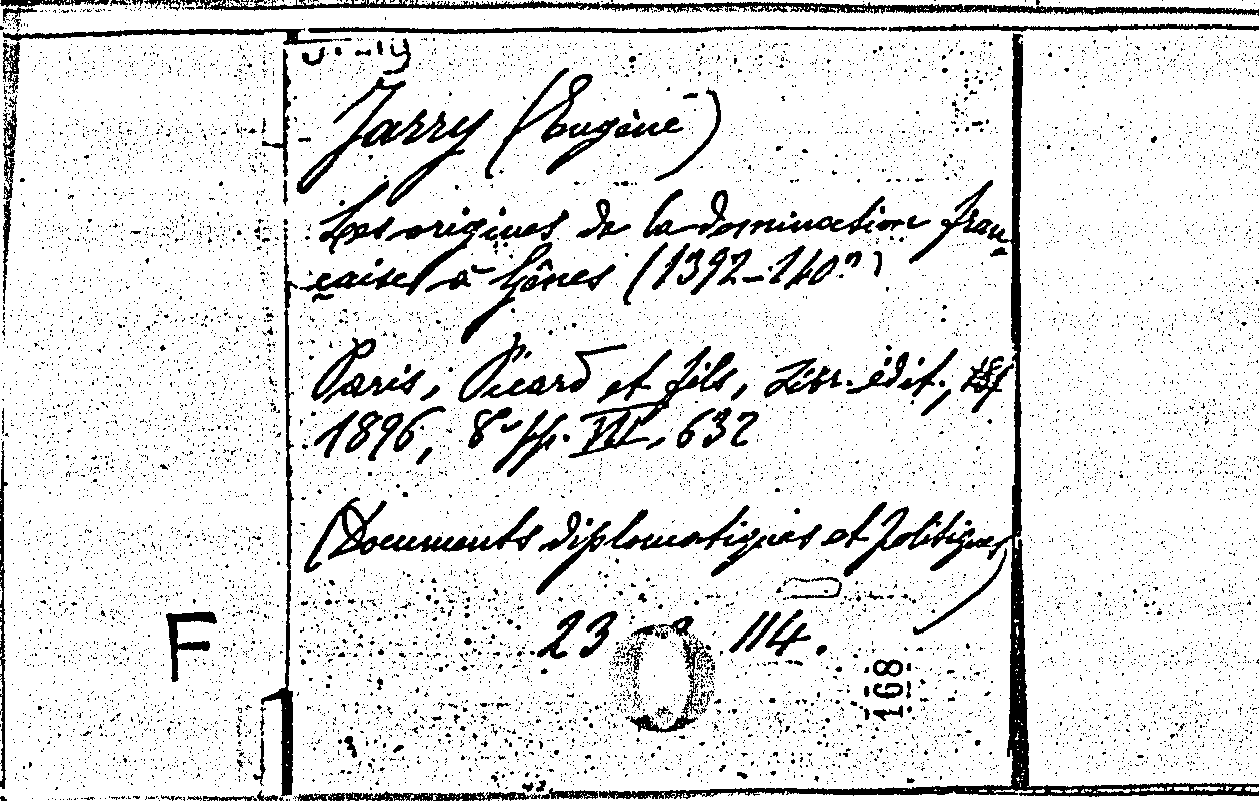 Jarry (Eugène)
Les origines de la domination fran-
çaise à Gênes (1392-140?)
Paris, Picard et fils, Libr. édit.,
1896, 8° pp. VII, 632
(Documents diplomatiques et politiques)
23 114.
F
168